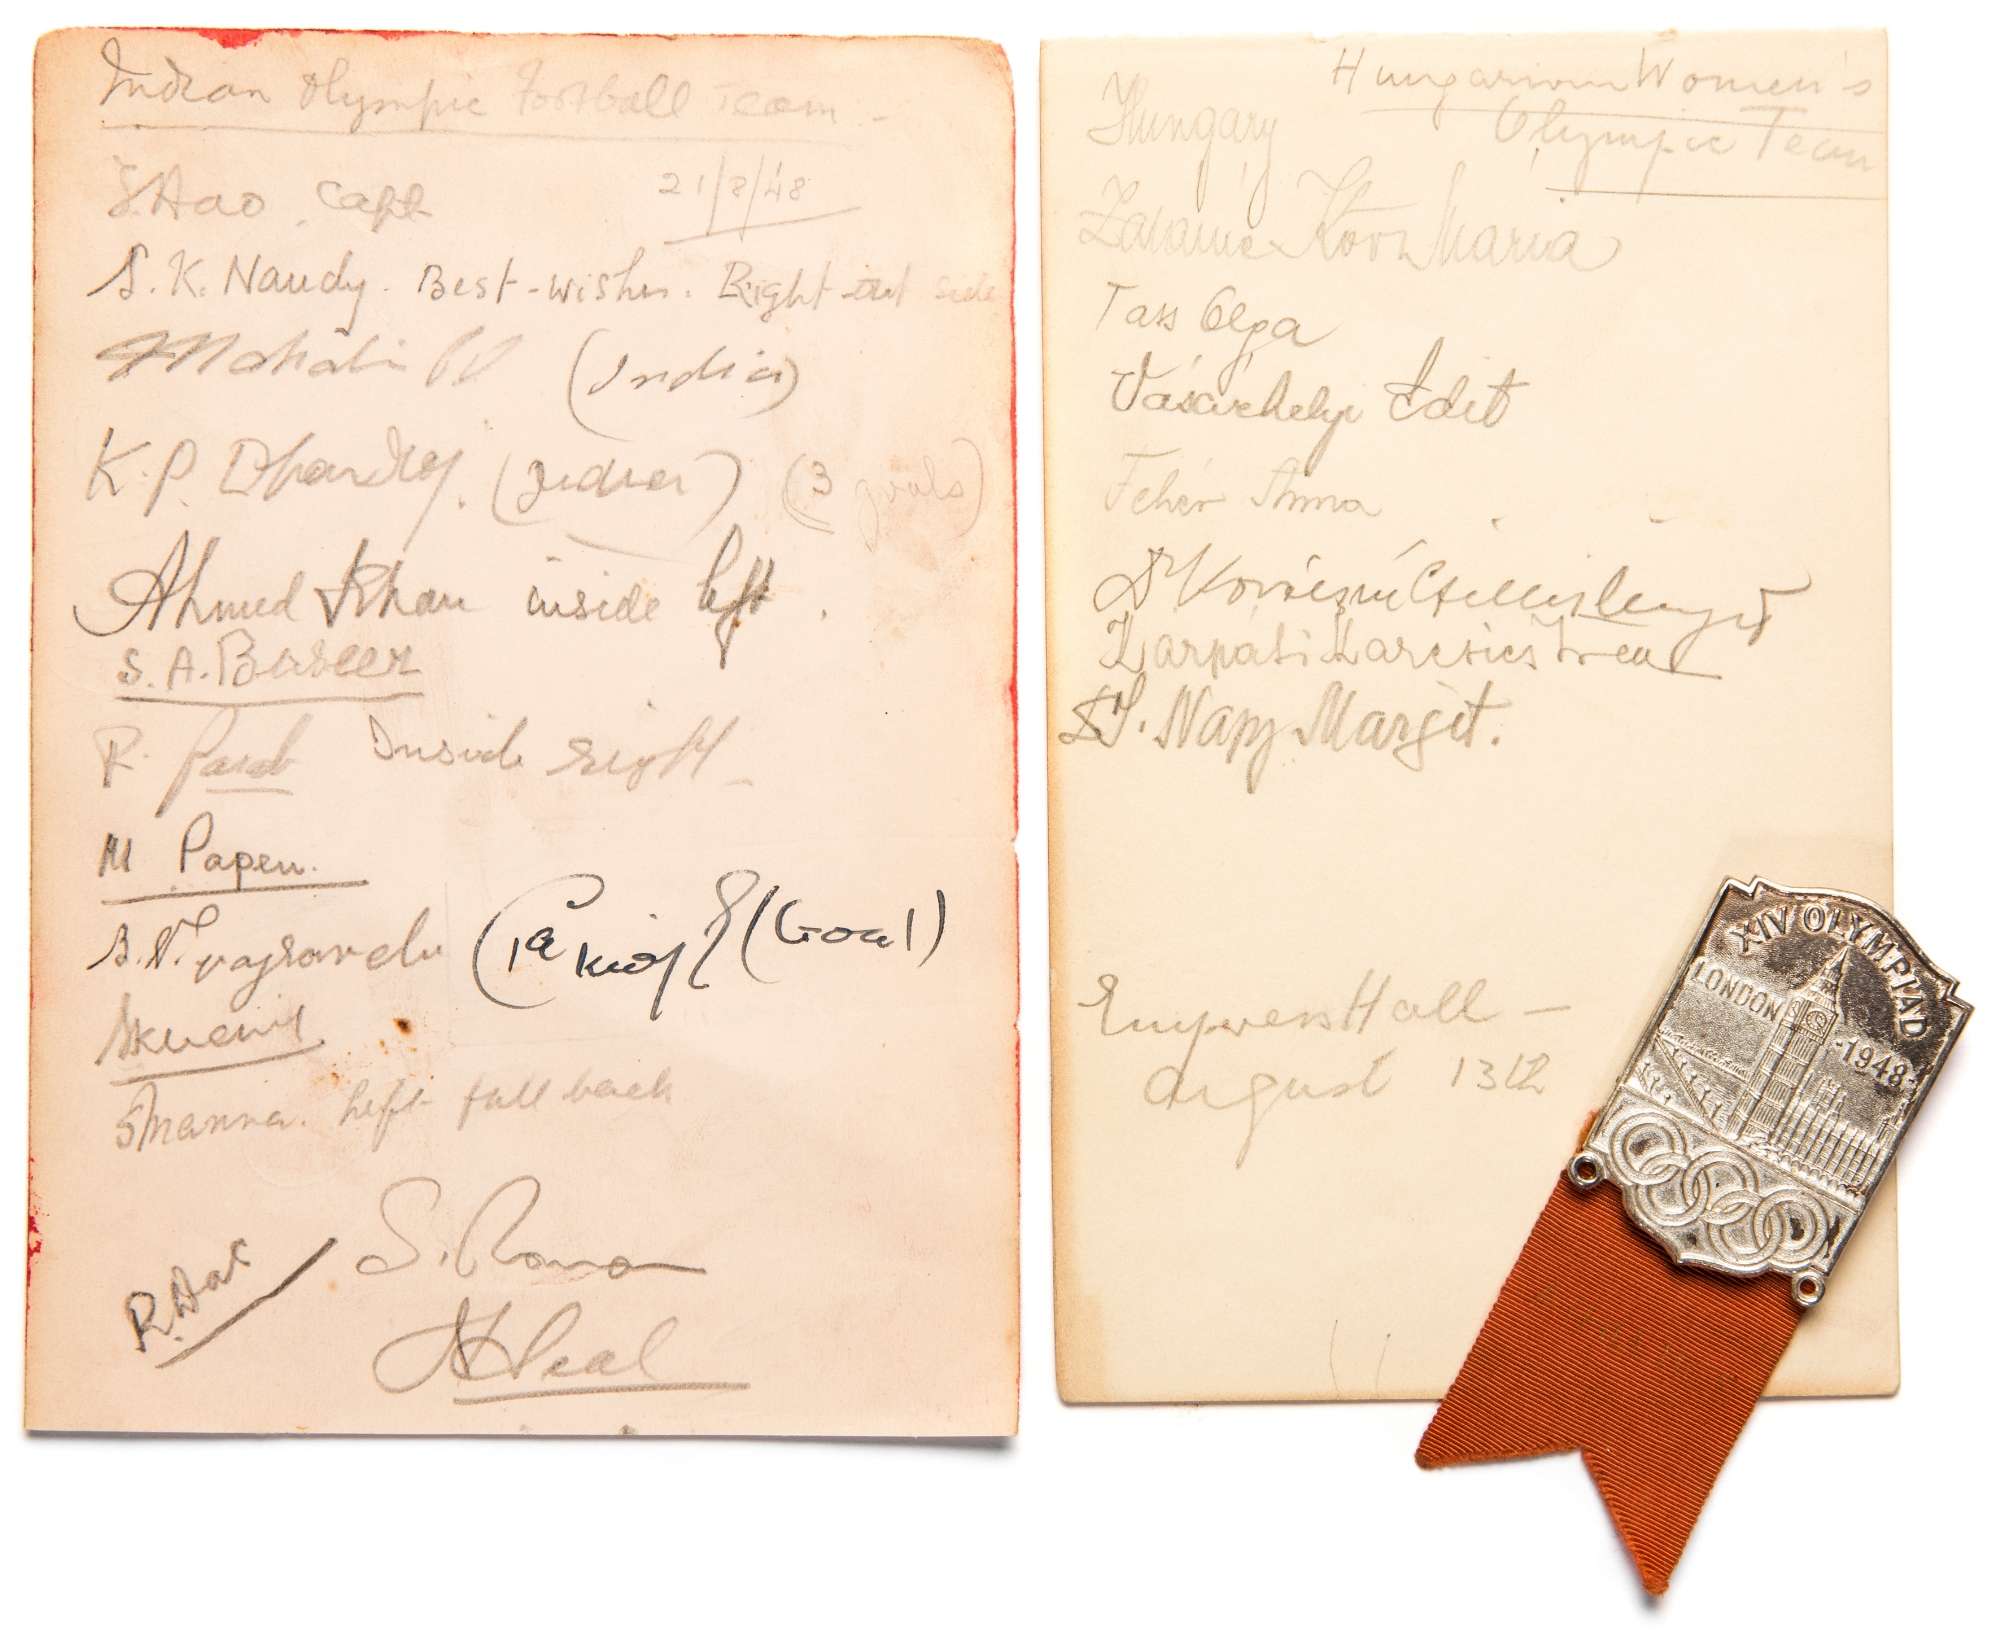 Indian Olympic Football Team -
T. Aao. Capt 21/8/48
S. K. Nandy. Best-wishes. Right-out side
(India)
K. P. Dhanraj. (India) (3 goals)
Ahmed Khan inside left.
S. A. Basheer
R. Inside right -
M Papen.
B. N. Vajravelu (Goal)
S Manna. Left full back
S. Raman
R. Das
Hungarian Women's
Olympic Team
Hungary
Zalainé Kövi Mária
Tass Olga
Vásárhelyi Edit
Fehér Anna
Kárpáti Karcsics Irén
Nagy Margit.
Empress Hall -
August 13th
XIV OLYMPIAD
LONDON
-1948-